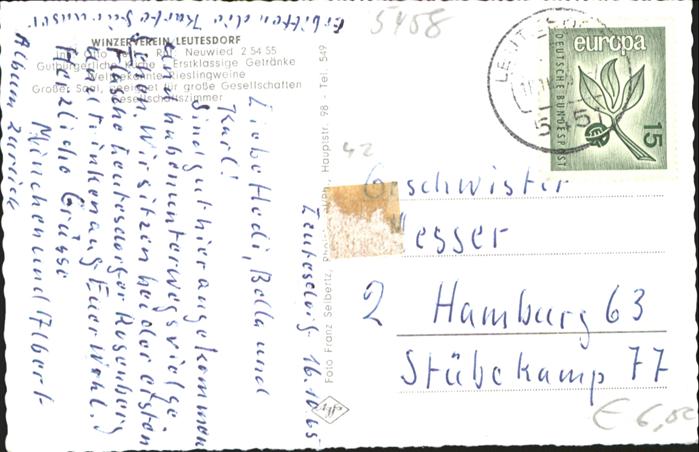 Erbitten die Karte für unser
Album zurück
WINZERVEREIN LEUTESDORF
Neuwied 2 54 55
Gutbürgerliche Küche · Erstklassige Getränke
Weltbekannte Rieslingweine
Großer Saal, geeignet für große Gesellschaften
Gesellschaftszimmer
Leutesdorf 16.10.65
Liebe Hedi, Bella und
Karl!
Sind gut hier angekommen
und haben unterwegs viel ge
sehen. Wir sitzen bei der ersten
Flasche Leutesdorfer Rosenberg
und trinken auf Euer Wohl.
Herzliche Grüsse
München und Albert
Foto Franz Seibertz, Hauptstr. 98 - Tel. 549
5458
42
europa
DEUTSCHE BUNDESPOST
15
Geschwister
Messer
2 Hamburg 63
Stübekamp 77
€ 6,00